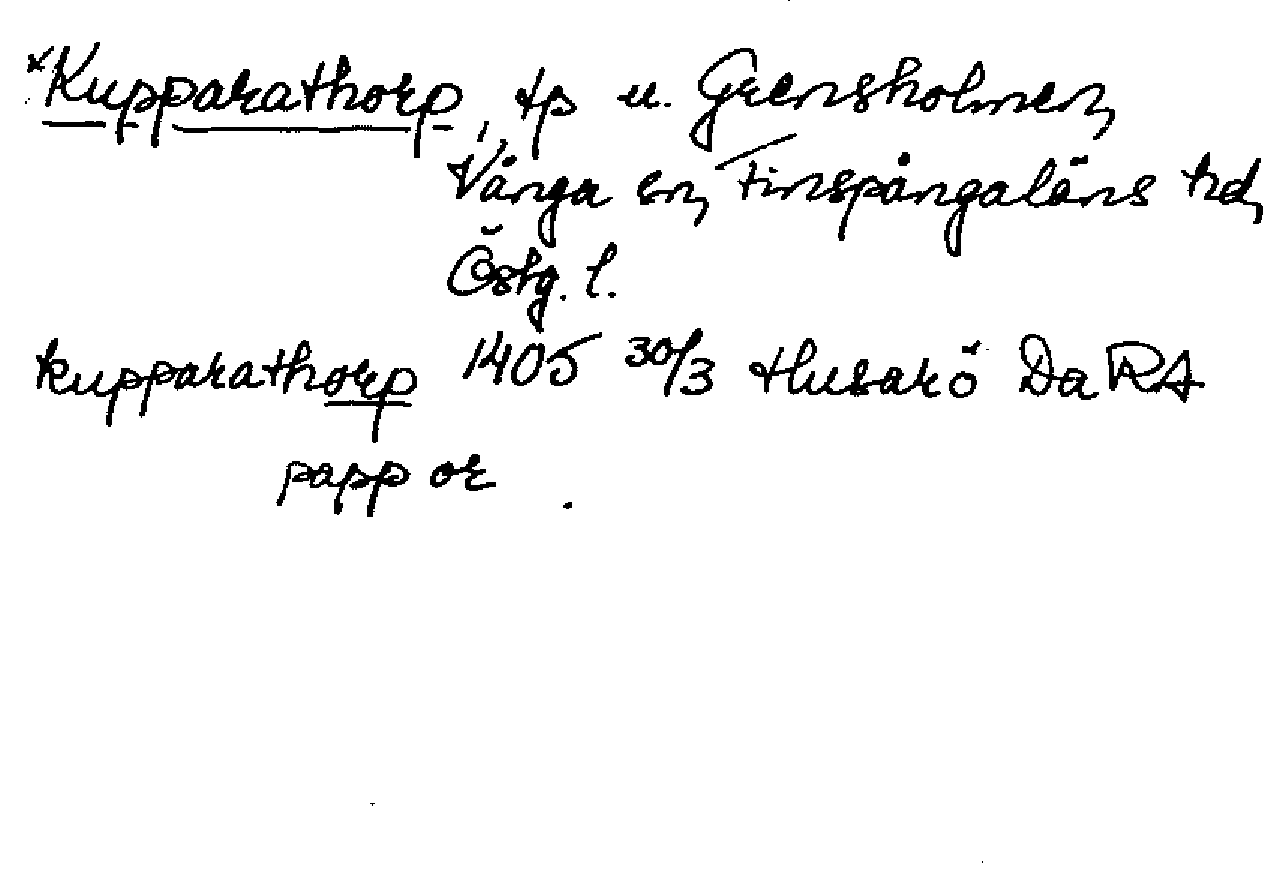 *Kupparathorp, tp u. Grensholmen,
Vånga sn, Finspångaläns hd,
Östg. l.
kupparathorp 1405 30/3 Husarö Da RA
papp or